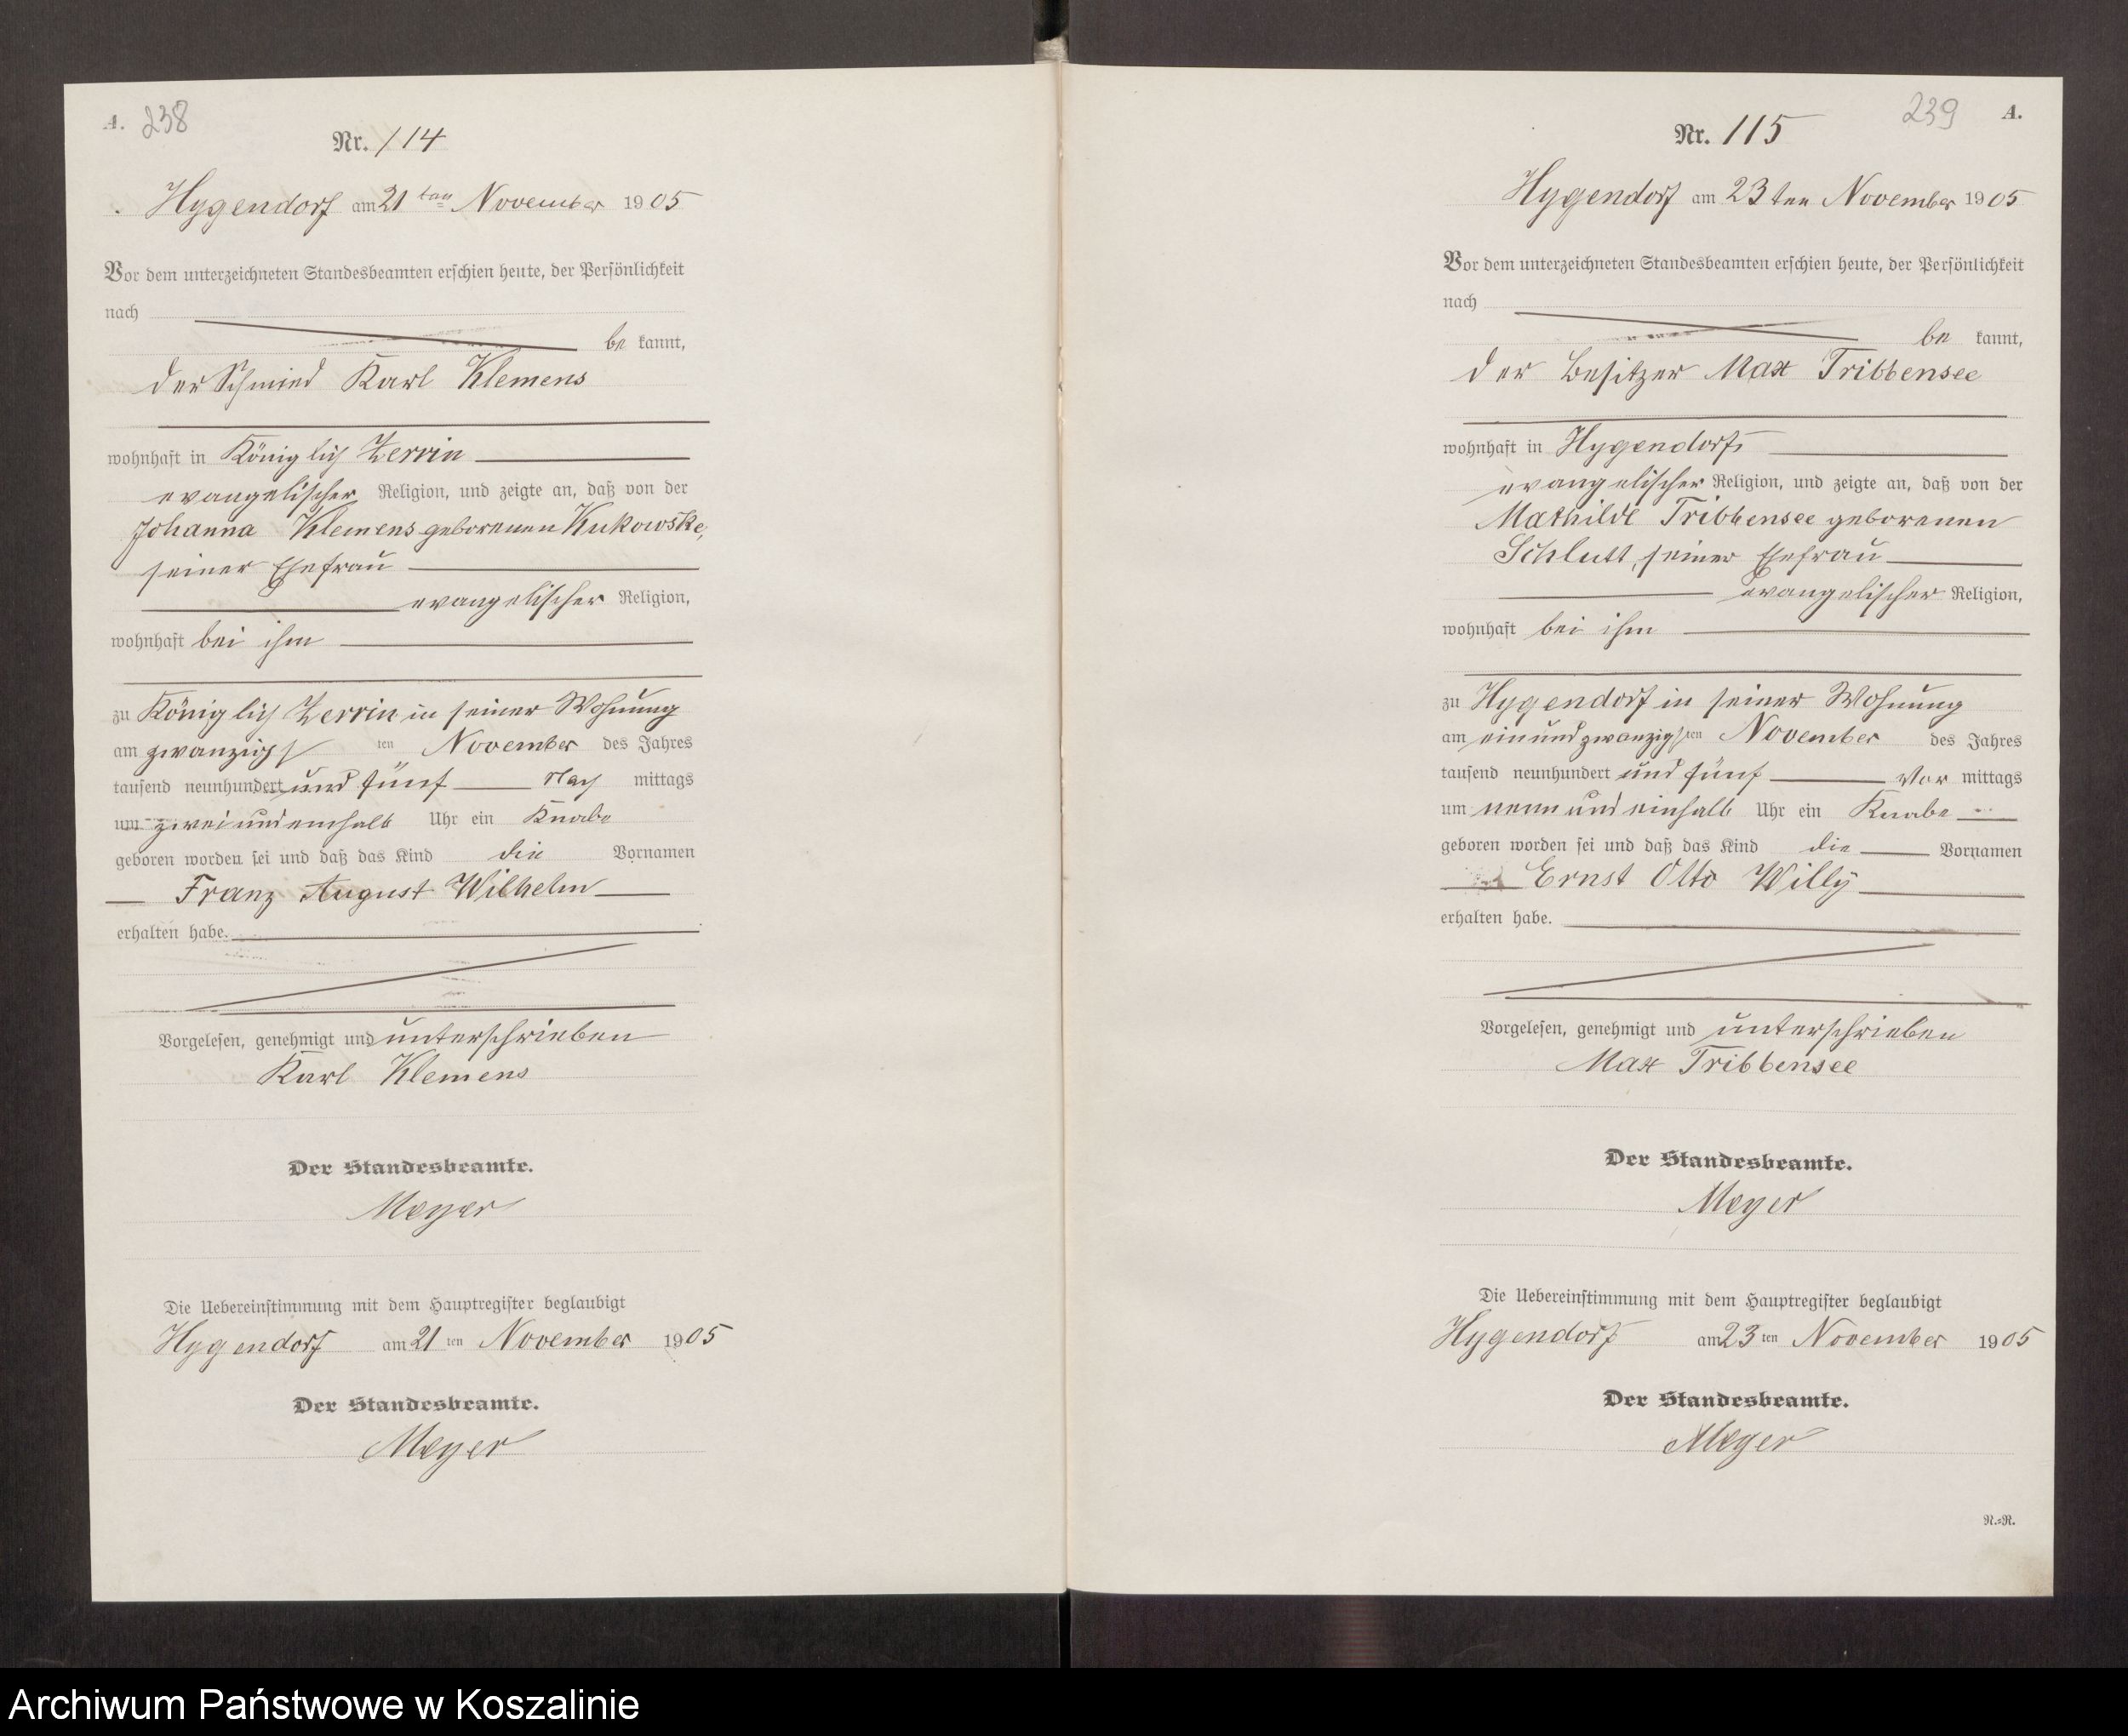 A. 238
Nr. 114
Hygendorf am 21 ten November 1905
Vor dem unterzeichneten Standesbeamten erschien heute, der Persönlichkeit
nach
be kannt,
der Schmied Karl Klemens
wohnhaft in Königlich Zerrin
evangelischer Religion, und zeigte an, daß von der
Johanna Klemens geborenen Kukowske,
seiner Ehefrau
evangelischer Religion,
wohnhaft bei ihm
zu Königlich Zerrin in seiner Wohnung
am zwanzigs ten November des Jahres
tausend neunhundert und fünf Nach mittags
um zwei und einhalb Uhr ein Knabe
geboren worden sei und daß das Kind die Vornamen
Franz August Wilhelm
erhalten habe.
Vorgelesen, genehmigt und unterschrieben
Karl Klemens
Der Standesbeamte.
Meyer
Die Uebereinstimmung mit dem Hauptregister beglaubigt
Hygendorf am 21 ten November 1905
Der Standesbeamte.
Meyer
239 A.
Nr. 115
Hygendorf am 23 ten November 1905
Vor dem unterzeichneten Standesbeamten erschien heute, der Persönlichkeit
nach
be kannt,
der Besitzer Max Tribbensee
wohnhaft in Hygendorf
evangelischer Religion, und zeigte an, daß von der
Mathilde Tribbensee geborenen
Schlutt, seiner Ehefrau
evangelischer Religion,
wohnhaft bei ihm
zu Hygendorf in seiner Wohnung
am ein und zwanzigs ten November des Jahres
tausend neunhundert und fünf Vor mittags
um neun und einhalb Uhr ein Knabe
geboren worden sei und daß das Kind die Vornamen
Ernst Otto Willy
erhalten habe.
Vorgelesen, genehmigt und unterschrieben
Max Tribbensee
Der Standesbeamte.
Meyer
Die Uebereinstimmung mit dem Hauptregister beglaubigt
Hygendorf am 23 ten November 1905
Der Standesbeamte.
Meyer
R.=R.
Archiwum Państwowe w Koszalinie